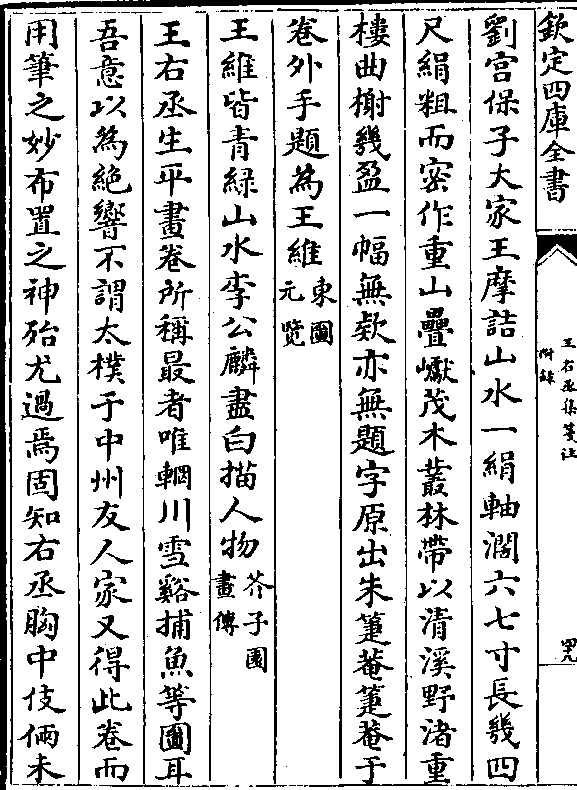 欽定四庫全書
王右丞集箋注
附錄
四九
劉宮保子大家王摩詰山水一絹軸濶六七寸長幾四
尺絹粗而宻作重山疊巘茂木叢林帶以清溪野渚重
樓曲榭幾盈一幅無欵亦無題字原出朱萐菴萐菴于
卷外手題為王維東圖元覽
王維皆青綠山水李公麟盡白描人物芥子園畫傳
王右丞生平畫卷所稱最者唯輞川雪谿捕魚等圖耳
吾意以為絶響不謂太樸于中州友人家又得此卷而
用筆之妙布置之神殆尤過焉固知右丞胸中伎倆未